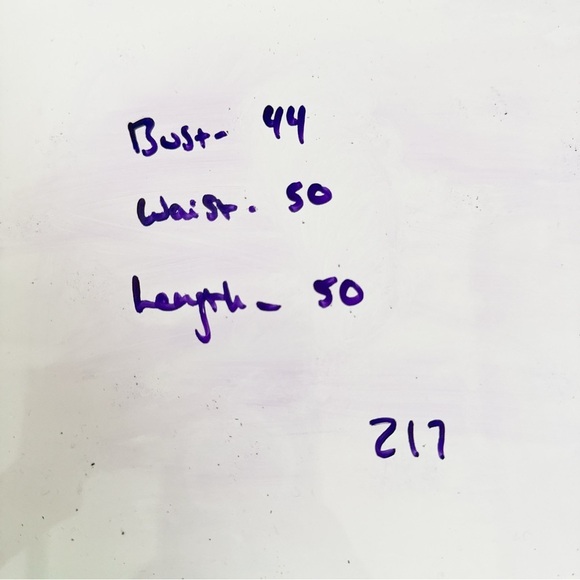 Bust- 44
Waist. 50
Length- 50
217